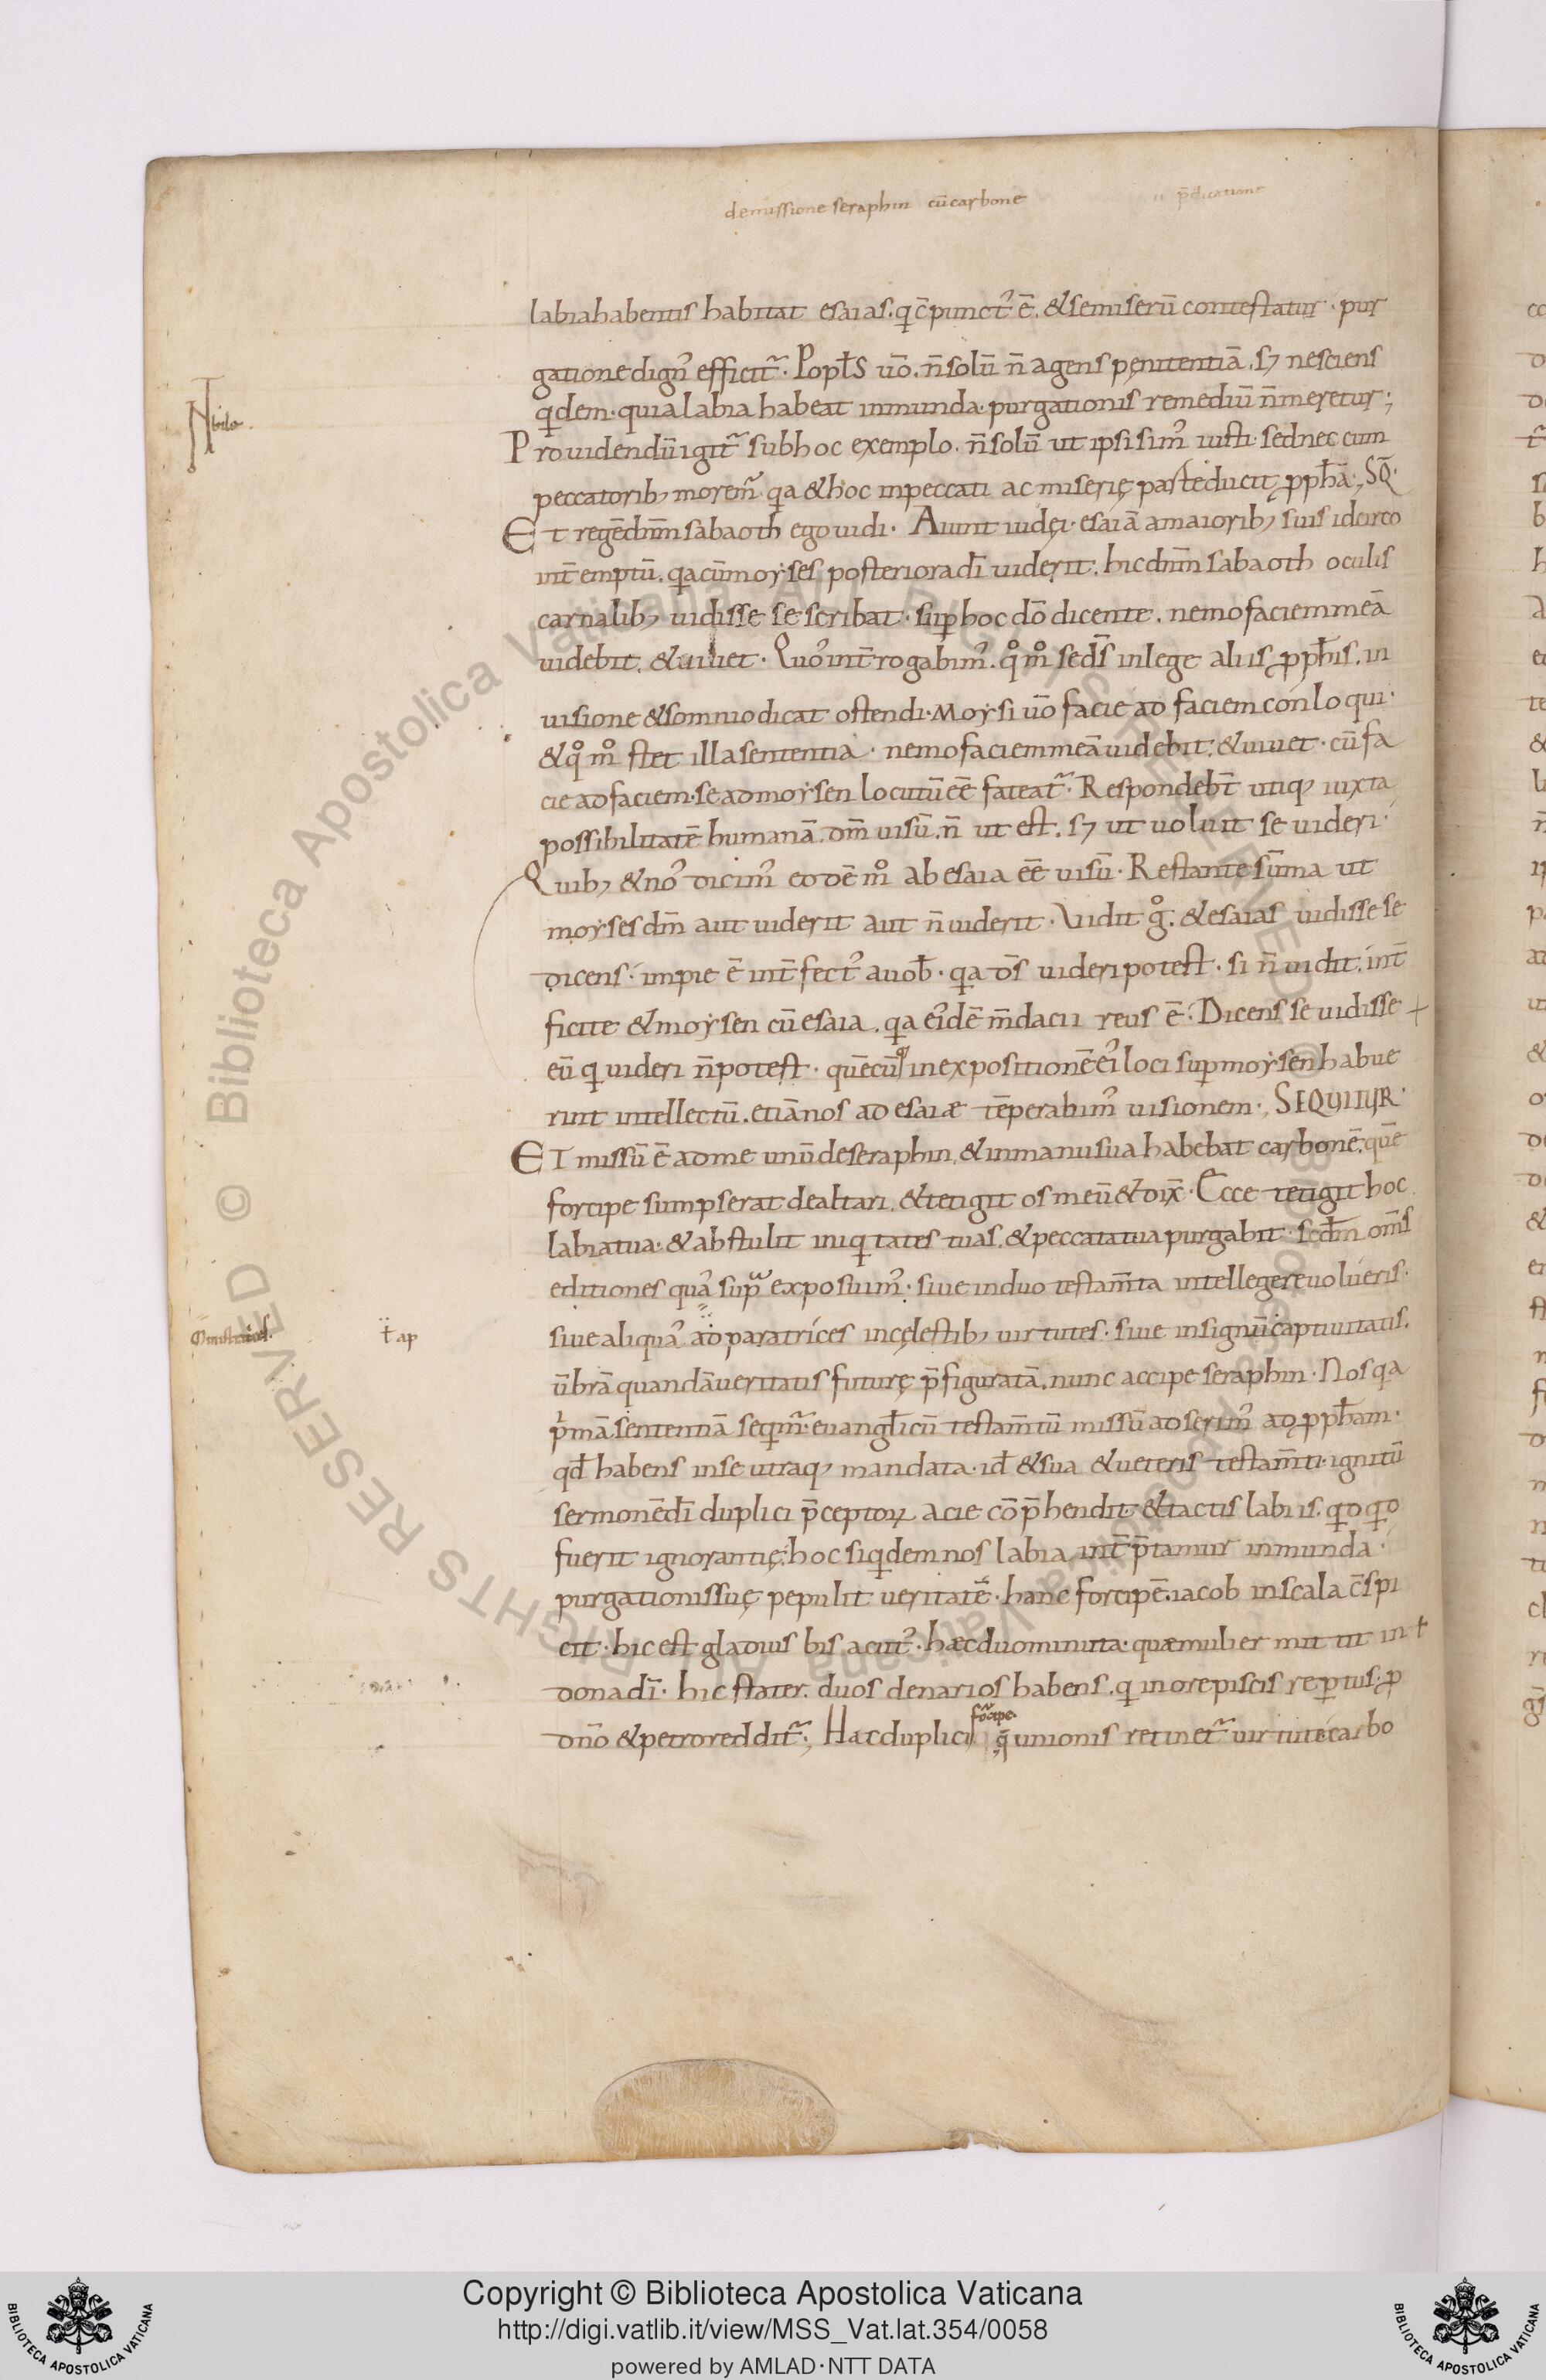 demissione seraphin cū carbone
p̄dicatione
labia habentis habitat esaias. q; c̄punct᾽ ē. & se miserū contestatur · pur
gatione dign᾽ efficit᷑. Popl̄s u̅o. n̄ solū n̄ agens pęnitentiā. sꝫ nesciens
qdem · quia labia habeat inmunda · purgationis remediū n̄ meretur;
Prouidendū igit᷑ sub hoc exemplo. n̄ solū ut ipsi sim᾽ iusti · sed nec cum
peccatorib; morem᷑ · qa & hoc in peccati ac miserię parte ducit ꝓpħa; SQ̄.
Et regē dn̄m sabaoth ego uidi. Aiunt iudęi · esaiā a maiorib; suis idcirco
int̄emptū. qa cū moyses posteriora dī uiderit. hic dn̄m sabaoth oculis
carnalib; uidisse se scribat · suꝑ hoc dō dicente. nemo faciem meā
uidebit. & uiuet. Quo᾽ int̄rogabim᾽. qͦmͦ se ds̄ in lege aliis ꝓpħis. in
uisione & somnio dicat ostendi · Moysi u̅o facie ad faciem conloqui.
& qͦmͦ stet illa sententia · nemo faciem meā uidebit. & uiuet · cū fa
cie ad faciem · se ad moysen locutū eē fateat᷑. Respondeb̄t utiq; iuxta
possibilitatē humanā. dm̄ uisū. n̄ ut est. sꝫ ut uoluit se uideri.
Quib; & no᾽ dicim᾽ eodē mͦ ab esaia eē uisū. Restante sūma ut
moyses dm̄ aut uiderit aut n̄ uiderit. Vidit gͦ. & esaias uidisse se
dicens · impie ē int̄fect᾽ a uob̄. qa ds̄ uideri potest. si n̄ uidit. int̄
ficite & moysen cū esaia. qa ei᾽dē m̄dacii reus ē. Dicens se uidisse +
eū q uideri n̄ potest. quē cūq; in expositionē ei᾽ loci suꝑ moysen habue
rint intellectū. etiā nos ad esaiæ tēperabim᾽ uisionem. SEQUITUR.
ET missū ē ad me unū de seraphin. & in manu sua habebat carbonē. quē
forcipe sumpserat de altari. & tetigit os meū & dix̄. Ecce tetigit hoc
labia tua. & abstulit iniqtates tuas. & peccata tua purgabit. sedm̄ om̄s
editiones qua᾽ supͣ exposuim᾽. siue in duo testam̄ta intellegere uolueris.
Omistrias.
ł ap
siue aliqua᾽ ad paratrices in cęlestib; uirtutes. siue in signū captiuitatis.
ūbrā quandā ueritatis futurę p̄figuratā. nunc accipe seraphin. Nos qa
pͥmā sententiā seqm᷑. euangl̄icū testam̄tū missū adserim᾽ ad ꝓpħam.
qd̄ habens in se utraq; mandata. id̄ & sua & ueteris testam̄ti. ignitū
sermonē dī duplici p̄ceptoꝝ acie cōp̄hendit & tactis labiis. qdqd
fuerit ignorantię. hoc siqdem nos labia int̄p̄tamur inmunda.
purgationis suę pepulit ueritatē. hanc forcipē. iacob in scala c̄spi
cit. hic est gladius bis acut᾽. hæc duo minuta. quæ mulier mittit in ł
dona dī. hic stater. duos denarios habens. q in ore piscis reꝑtus. ꝓ
dn̄o & petro reddit᷑. Hac duplici forcipe q̄ unionis retinet᷑ uirtute carbo
Copyright © Biblioteca Apostolica Vaticana
http://digi.vatlib.it/view/MSS_Vat.lat.354/0058
powered by AMLAD·NTT DATA
BIBLIOTECA APOSTOLICA VATICANA
BIBLIOTECA APOSTOLICA VATICANA